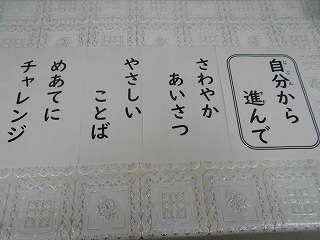 自分から
進んで
さわやか
あいさつ
やさしい
ことば
めあてに
チャレンジ